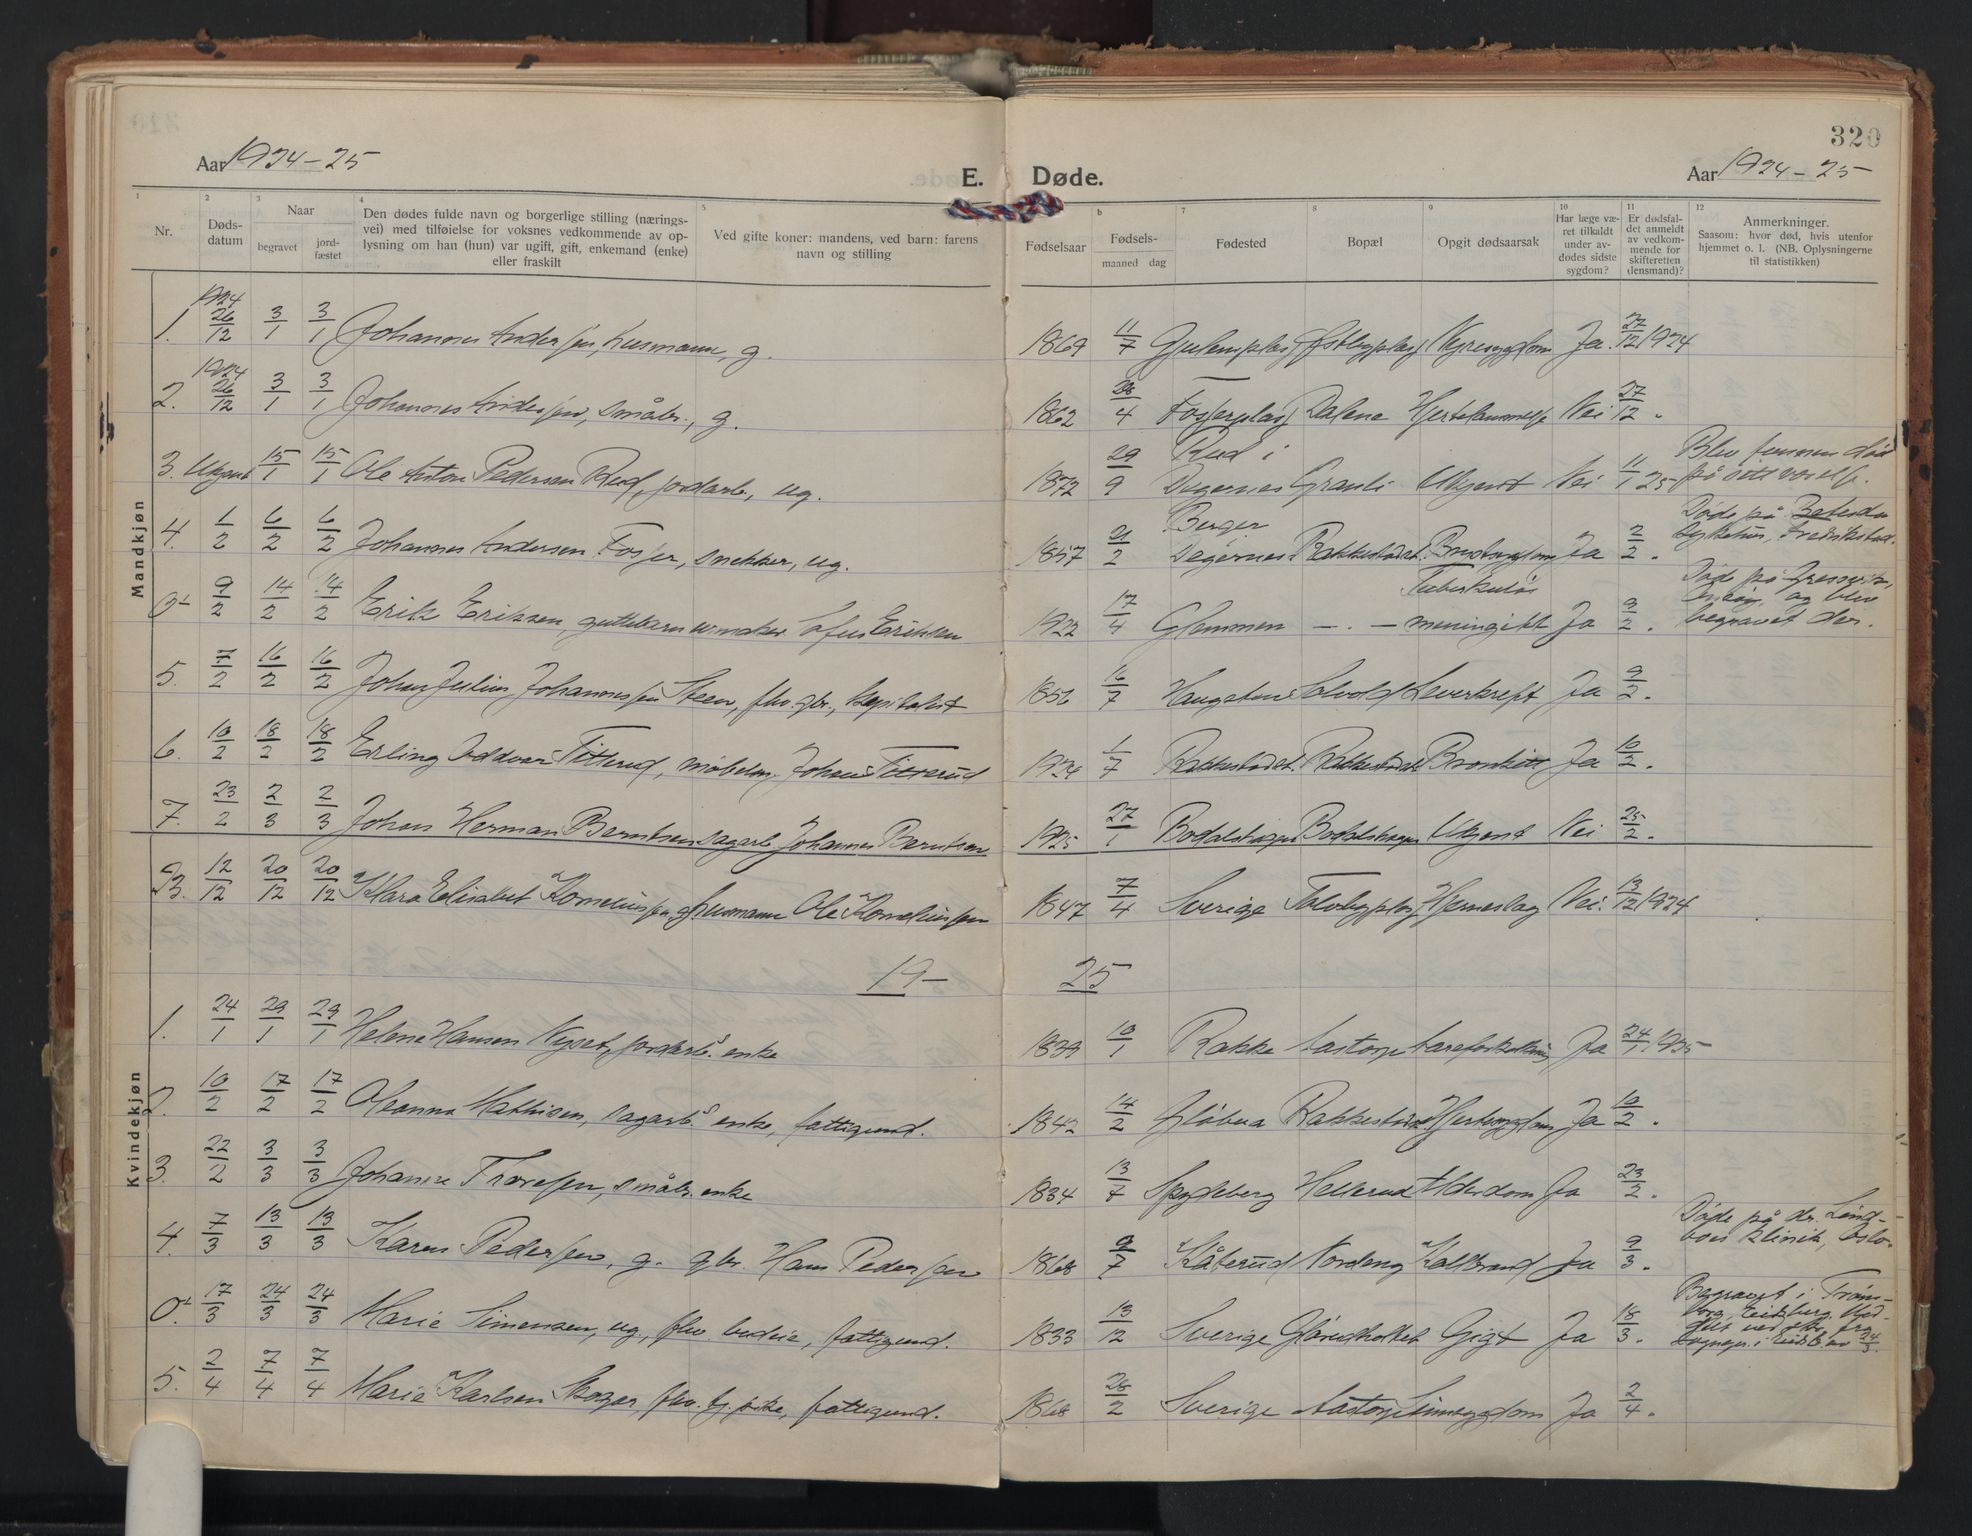 320
Aar 1924-25 E. Døde. Aar 1924-25
1 2 3 4 5 6 7 8 9 10 11 12
Nr. Dødsdatum Naar begravet jordfæstet
Den dødes fulde navn og borgerlige stilling (næringsvei) med tilføielse for voksnes vedkommende av oplysning om han (hun) var ugift, gift, enkemand (enke) eller fraskilt
Ved gifte koner: mandens, ved barn: farens navn og stilling
Fødselsaar Fødsels- maaned dag Fødested Bopæl Opgit dødsaarsak
Har læge været tilkaldt under avdødes sidste sygdom?
Er dødsfaldet anmeldt av vedkommende for skifteretten (lensmand)?
Anmerkninger. Saasom: hvor død, hvis utenfor hjemmet o. l. (NB. Oplysningerne til statistikken)
Mandkjøn
1. 1924 26/12 3/1 3/1 Johannes Andersen, husmann, g. 1869 11/7 Nyresygdom Ja 27/12 1924
2. 1924 26/12 3/1 3/1 Johannes Andersen, småbr., g. 1862 28/4 Fosserplass Dalene Hjertelammelse Nei 27/12 "
3. Ukjent 15/1 15/1 Ole Anton Pedersen Rud, jordarb., ug. 1872 29/9 Rud i Degernes Granli Ukjent Nei 11/1 25 Blev funnen død på sett værelse.
4. 1/2 6/2 6/2 Johannes Andersen Fosser, snekker, ug. 1857 21/2 Berger Degernes Rakkestadst. Brystsygdom Ja 2/2 " Døde på Betesda sykehus, Fredrikstad.
0t 9/2 14/2 14/2 Erik Eriksen, guttebarn urmaker Sofus Eriksen 1922 17/4 Glemmen - " - Tuberkuløs meningitt Ja 9/2 " Døde på Gressvik, Onsøy, og blev begravet der.
5. 7/2 16/2 16/2 Johan Julius Johannessen Steen, fhv. gbr., kapitalist 1856 16/7 Haugsten Solvold Leverkreft Ja 9/2 "
6. 10/2 18/2 18/2 Erling Oddvar Titterud, Johan Titterud 1924 1/7 Rakkestadst. Rakkestadst. Bronkitt Ja 10/2 "
7. 23/2 2/3 2/3 Johan Herman Berntsen sagarb. Johannes Berntsen 1925 27/1 Bodalshagen Bodalshagen Ukjent Nei 25/2 "
23. 12/12 20/12 20/12 Klara Elisabet Korneliussen, g. husmann Ole Korneliussen 1847 7/4 Sverige Hjerneslag Nei 13/12 1924
19- 25
Kvindekjøn
1. 24/1 29/1 29/1 Helene Hansen Nyset, jordarb.s enke 1839 10/1 Rakke Aastorp Aareforkalkning Ja 24/1 1925
2. 10/2 17/2 17/2 Oleanna Mathisen, sagarb.s enke, fattigund. 1842 14/2 Rakkestadst. Hjertesygdom Ja 10/2 "
3. 22/2 3/3 3/3 Johanne Thoresen, småbr. enke 1834 13/7 Spydeberg Hellerud Alderdom Ja 23/2 "
4. 7/3 13/3 13/3 Karen Pedersen, g. gbr. Hans Pedersen 1868 9/7 Kåterud Nordeng Koldbrand Ja 9/3 " Døde på dr. Lindboes klinik, Oslo.
0t 17/3 24/3 24/3 Marie Simensen, ug., fhv. budeie, fattigund. 1833 13/12 Sverige Gigt Ja 18/3 " Begravet i Trømborg, Eidsberg. 24/3.
5. 2/4 7/4 7/4 Marie Karlsen Skoger, fhv. tj. pike, fattigund. 1868 28/2 Sverige Aastorp Sinnssygdom Ja 2/4 "